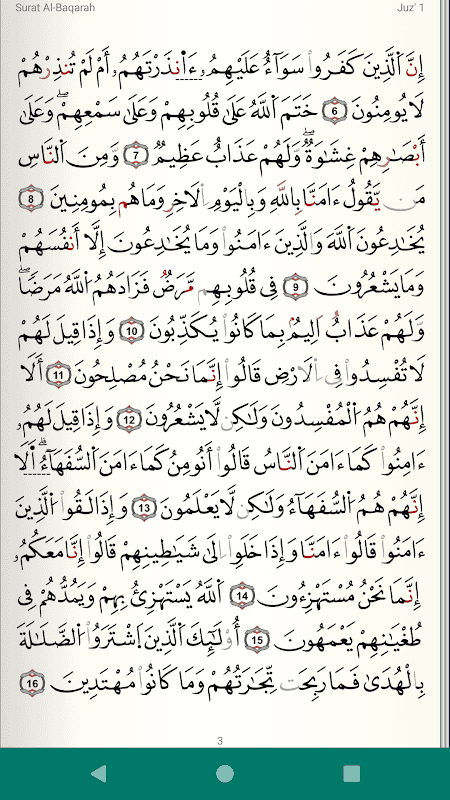 Surat Al-Baqarah Juz' 1
إِنَّ اَلذِينَ كَفَرُواْ سَوَآءٌ عَلَيْهِمُۥٓ ءَآنذَرْتَهُمُۥٓ أَمْ لَمْ تُنذِرْهُمْ
لَا يُومِنُونَ 6 خَتَمَ اَللَّهُ عَلَىٰ قُلُوبِهِمْ وَعَلَىٰ سَمْعِهِمْۖ وَعَلَىٰ
أَبْصَٰرِهِمْ غِشَٰوَةٌۖ وَلَهُمْ عَذَابٌ عَظِيمٌۖ 7 وَمِنَ اَلنَّاسِ
مَنْ يَّقُولُ ءَامَنَّا بِاللَّهِ وَبِالْيَوْمِ اِلَاخِرِ وَمَا هُم بِمُومِنِينَ 8
يُخَٰدِعُونَ اَللَّهَ وَالذِينَ ءَامَنُواْ وَمَا يُخَٰدِعُونَ إِلَّآ أَنفُسَهُمْ
وَمَا يَشْعُرُونَ 9 فِى قُلُوبِهِم مَّرَضٌ فَزَادَهُمُ اُللَّهُ مَرَضاًۖ
وَلَهُمْ عَذَابٌ اَلِيمُۢ بِمَا كَانُواْ يُكَذِّبُونَ 10 وَإِذَا قِيلَ لَهُمْ
لَا تُفْسِدُواْ فِى اِلَارْضِ قَالُوٓاْ إِنَّمَا نَحْنُ مُصْلِحُونَ 11 أَلَآ
إِنَّهُمْ هُمُ اُلْمُفْسِدُونَ وَلَٰكِن لَّا يَشْعُرُونَ 12 وَإِذَا قِيلَ لَهُمُۥٓ
ءَامِنُواْ كَمَآ ءَامَنَ اَلنَّاسُ قَالُوٓاْ أَنُومِنُ كَمَآ ءَامَنَ اَلسُّفَهَآءُۖ اَلَآ
إِنَّهُمْ هُمُ اُلسُّفَهَآءُ وَلَٰكِن لَّا يَعْلَمُونَ 13 وَإِذَا لَقُواْ اُلذِينَ
ءَامَنُواْ قَالُوٓاْ ءَامَنَّا وَإِذَا خَلَوِاْ اِلَىٰ شَيَٰطِينِهِمْ قَالُوٓاْ إِنَّا مَعَكُمُۥٓ
إِنَّمَا نَحْنُ مُسْتَهْزِءُونَ 14 اَللَّهُ يَسْتَهْزِئُ بِهِمْ وَيَمُدُّهُمْ فِى
طُغْيَٰنِهِمْ يَعْمَهُونَ 15 أُوْلَٰٓئِكَ اَلذِينَ اَشْتَرَوُاْ اُلضَّلَٰلَةَ
بِالْهُدَىٰ فَمَا رَبِحَت تِّجَٰرَتُهُمْ وَمَا كَانُواْ مُهْتَدِينَ 16
3